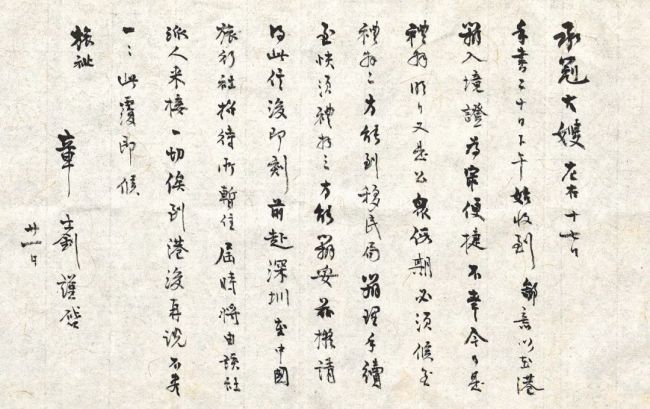 承冕大嫂左右十七日
手書二十日下午始收到鄙意以至港
辦入境證為宗便捷不幸今日是
禮拜明日又是公衆假期必須候至
禮拜二方能到移民局辦理手續
至快須禮拜三方能辦妥茲擬請
得此信後即刻前赴深圳在中國
旅行社招待所暫住屆時將由該社
派人來接一切俟到港後再說不盡
一一此覆即候
旅祉
章士釗謹啓
廿一日